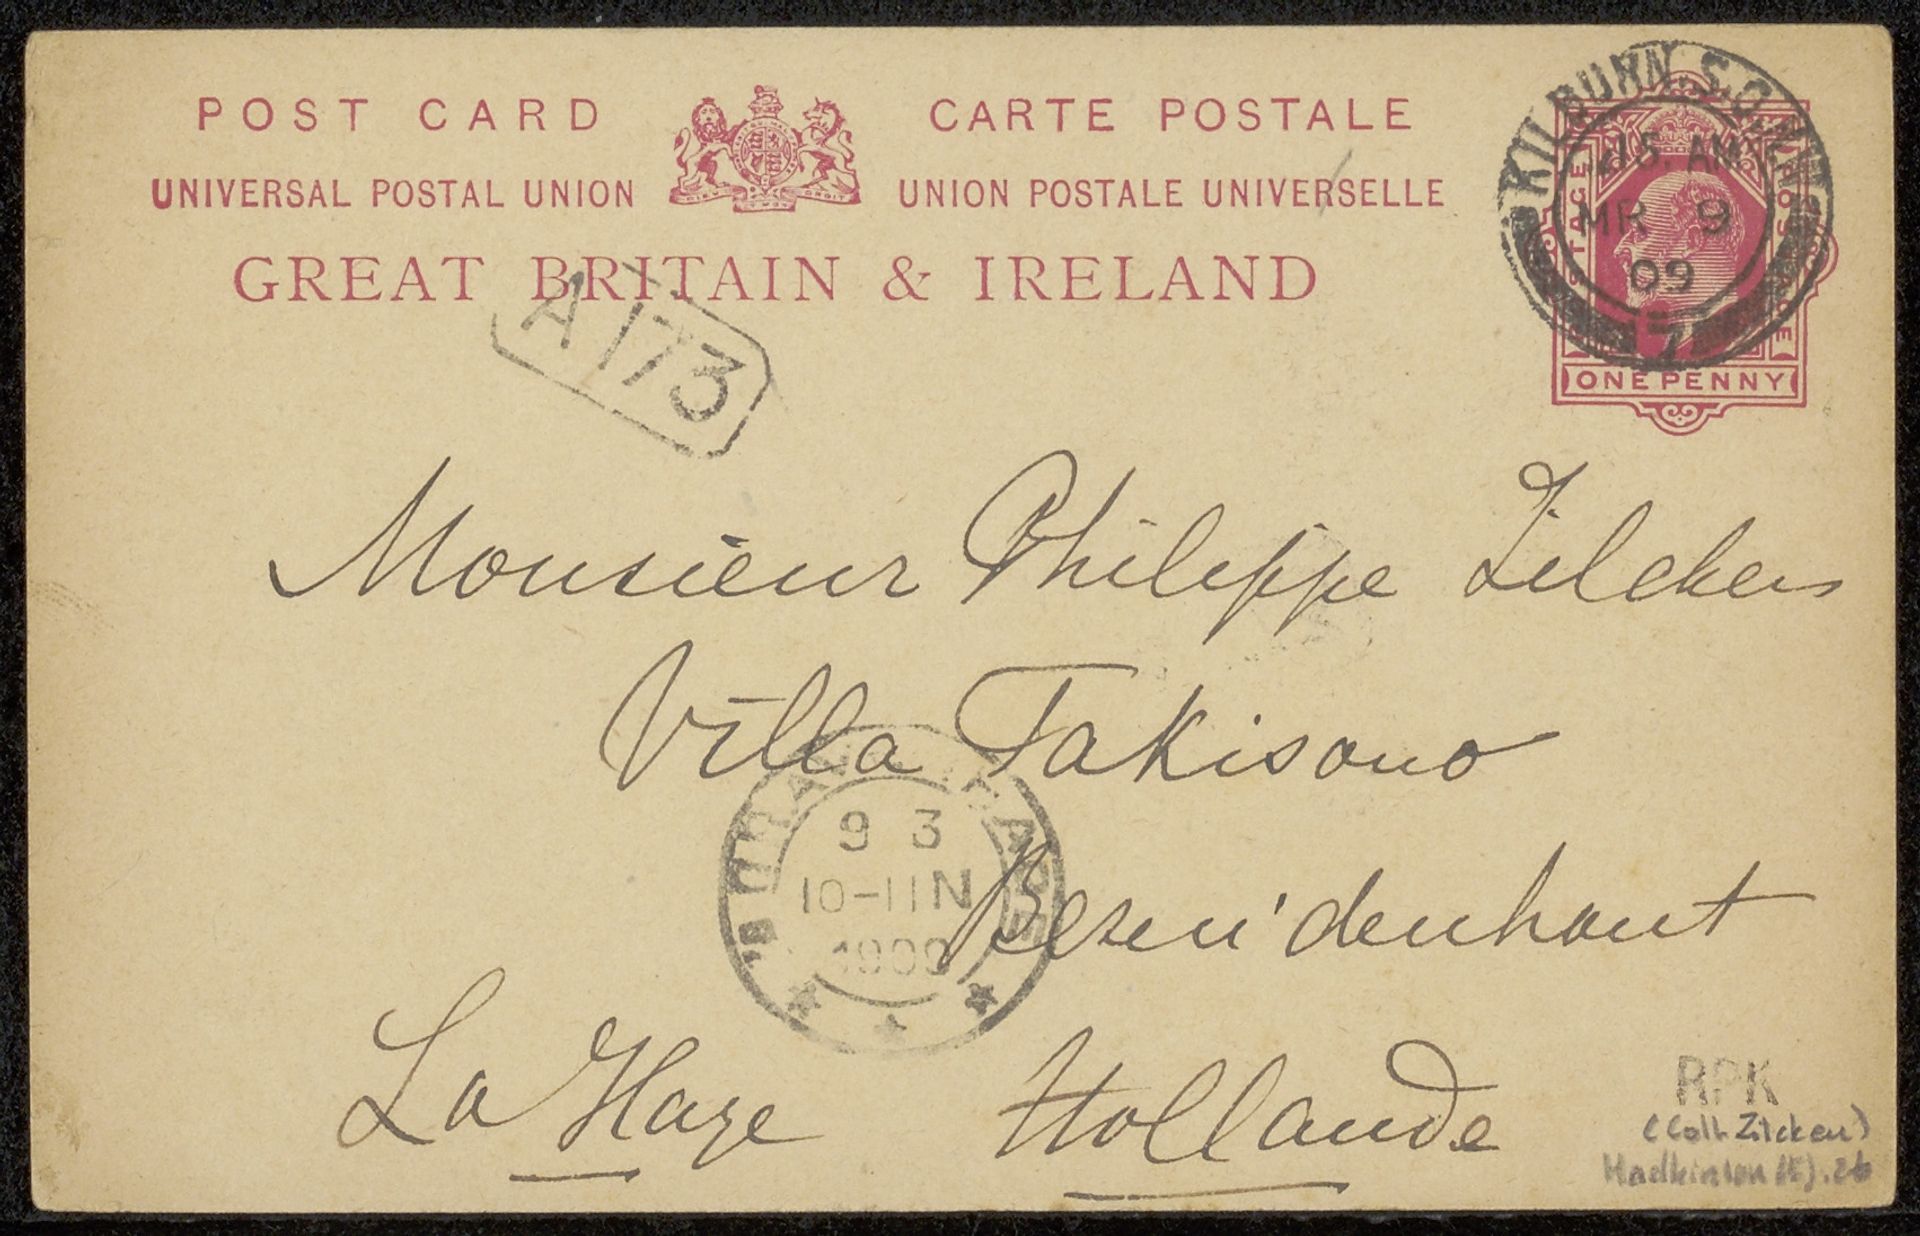 POST CARD CARTE POSTALE
UNIVERSAL POSTAL UNION UNION POSTALE UNIVERSELLE
GREAT BRITAIN & IRELAND
KILBURN.S.O.
15 AM
MR 9
09
7
ONE PENNY
A173
Monsieur Philippe Zilcken
Villa Takisono
9 3
10-11N
1909
Bezuidenhout
La Haye Hollande
RPK
(Coll. Zilcken)